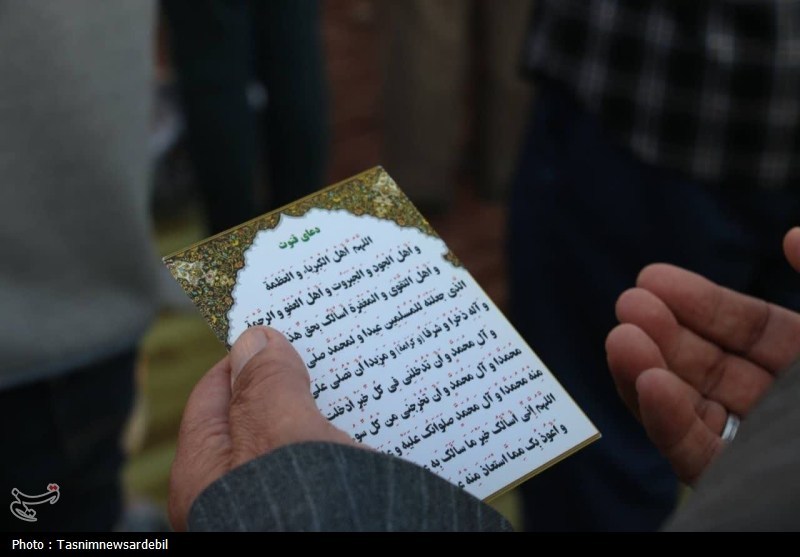 دعای قنوت
اللهُمَّ اَهْلَ الْکِبْرِیاءِ وَ الْعَظَمَةِ
وَ اَهْلَ الْجُودِ وَ الْجَبَرُوتِ وَ اَهْلَ الْعَفْوِ وَ الرَّحْمَةِ
وَ اَهْلَ التَّقْوی وَ الْمَغْفِرَةِ اَسْاَلُکَ بِحَقِّ هذَ
الَّذی جَعَلْتَهُ لِلْمُسْلِمینَ عیدا وَ لِمُحَمَّدٍ صَلَّی
وَ آلِهِ ذُخْرا وَ شَرَفا (وَ کَرامَةً) وَ مَزیدا اَنْ تُصَلِّیَ عَلی
وَ آلِ مُحَمَّدٍ وَ اَنْ تُدْخِلَنی فی کُلِّ خَیْرٍ اَدْخَلْتَ
مُحَمَّدا وَ آلَ مُحَمَّدٍ وَ اَنْ تُخْرِجَنی مِنْ کُلِّ سُو
مِنْهُ مُحَمَّدا وَ آلَ مُحَمَّدٍ صَلَواتُکَ عَلَیْهِ وَ عَ
اللهُمَّ اِنّی اَسْاَلُکَ خَیْرَ ما سَاَلَکَ بِهِ
وَ اَعُوذُ بِکَ مِمَّا اسْتَعاذَ مِنْهُ
تسنیم
Photo : Tasnimnewsardebil